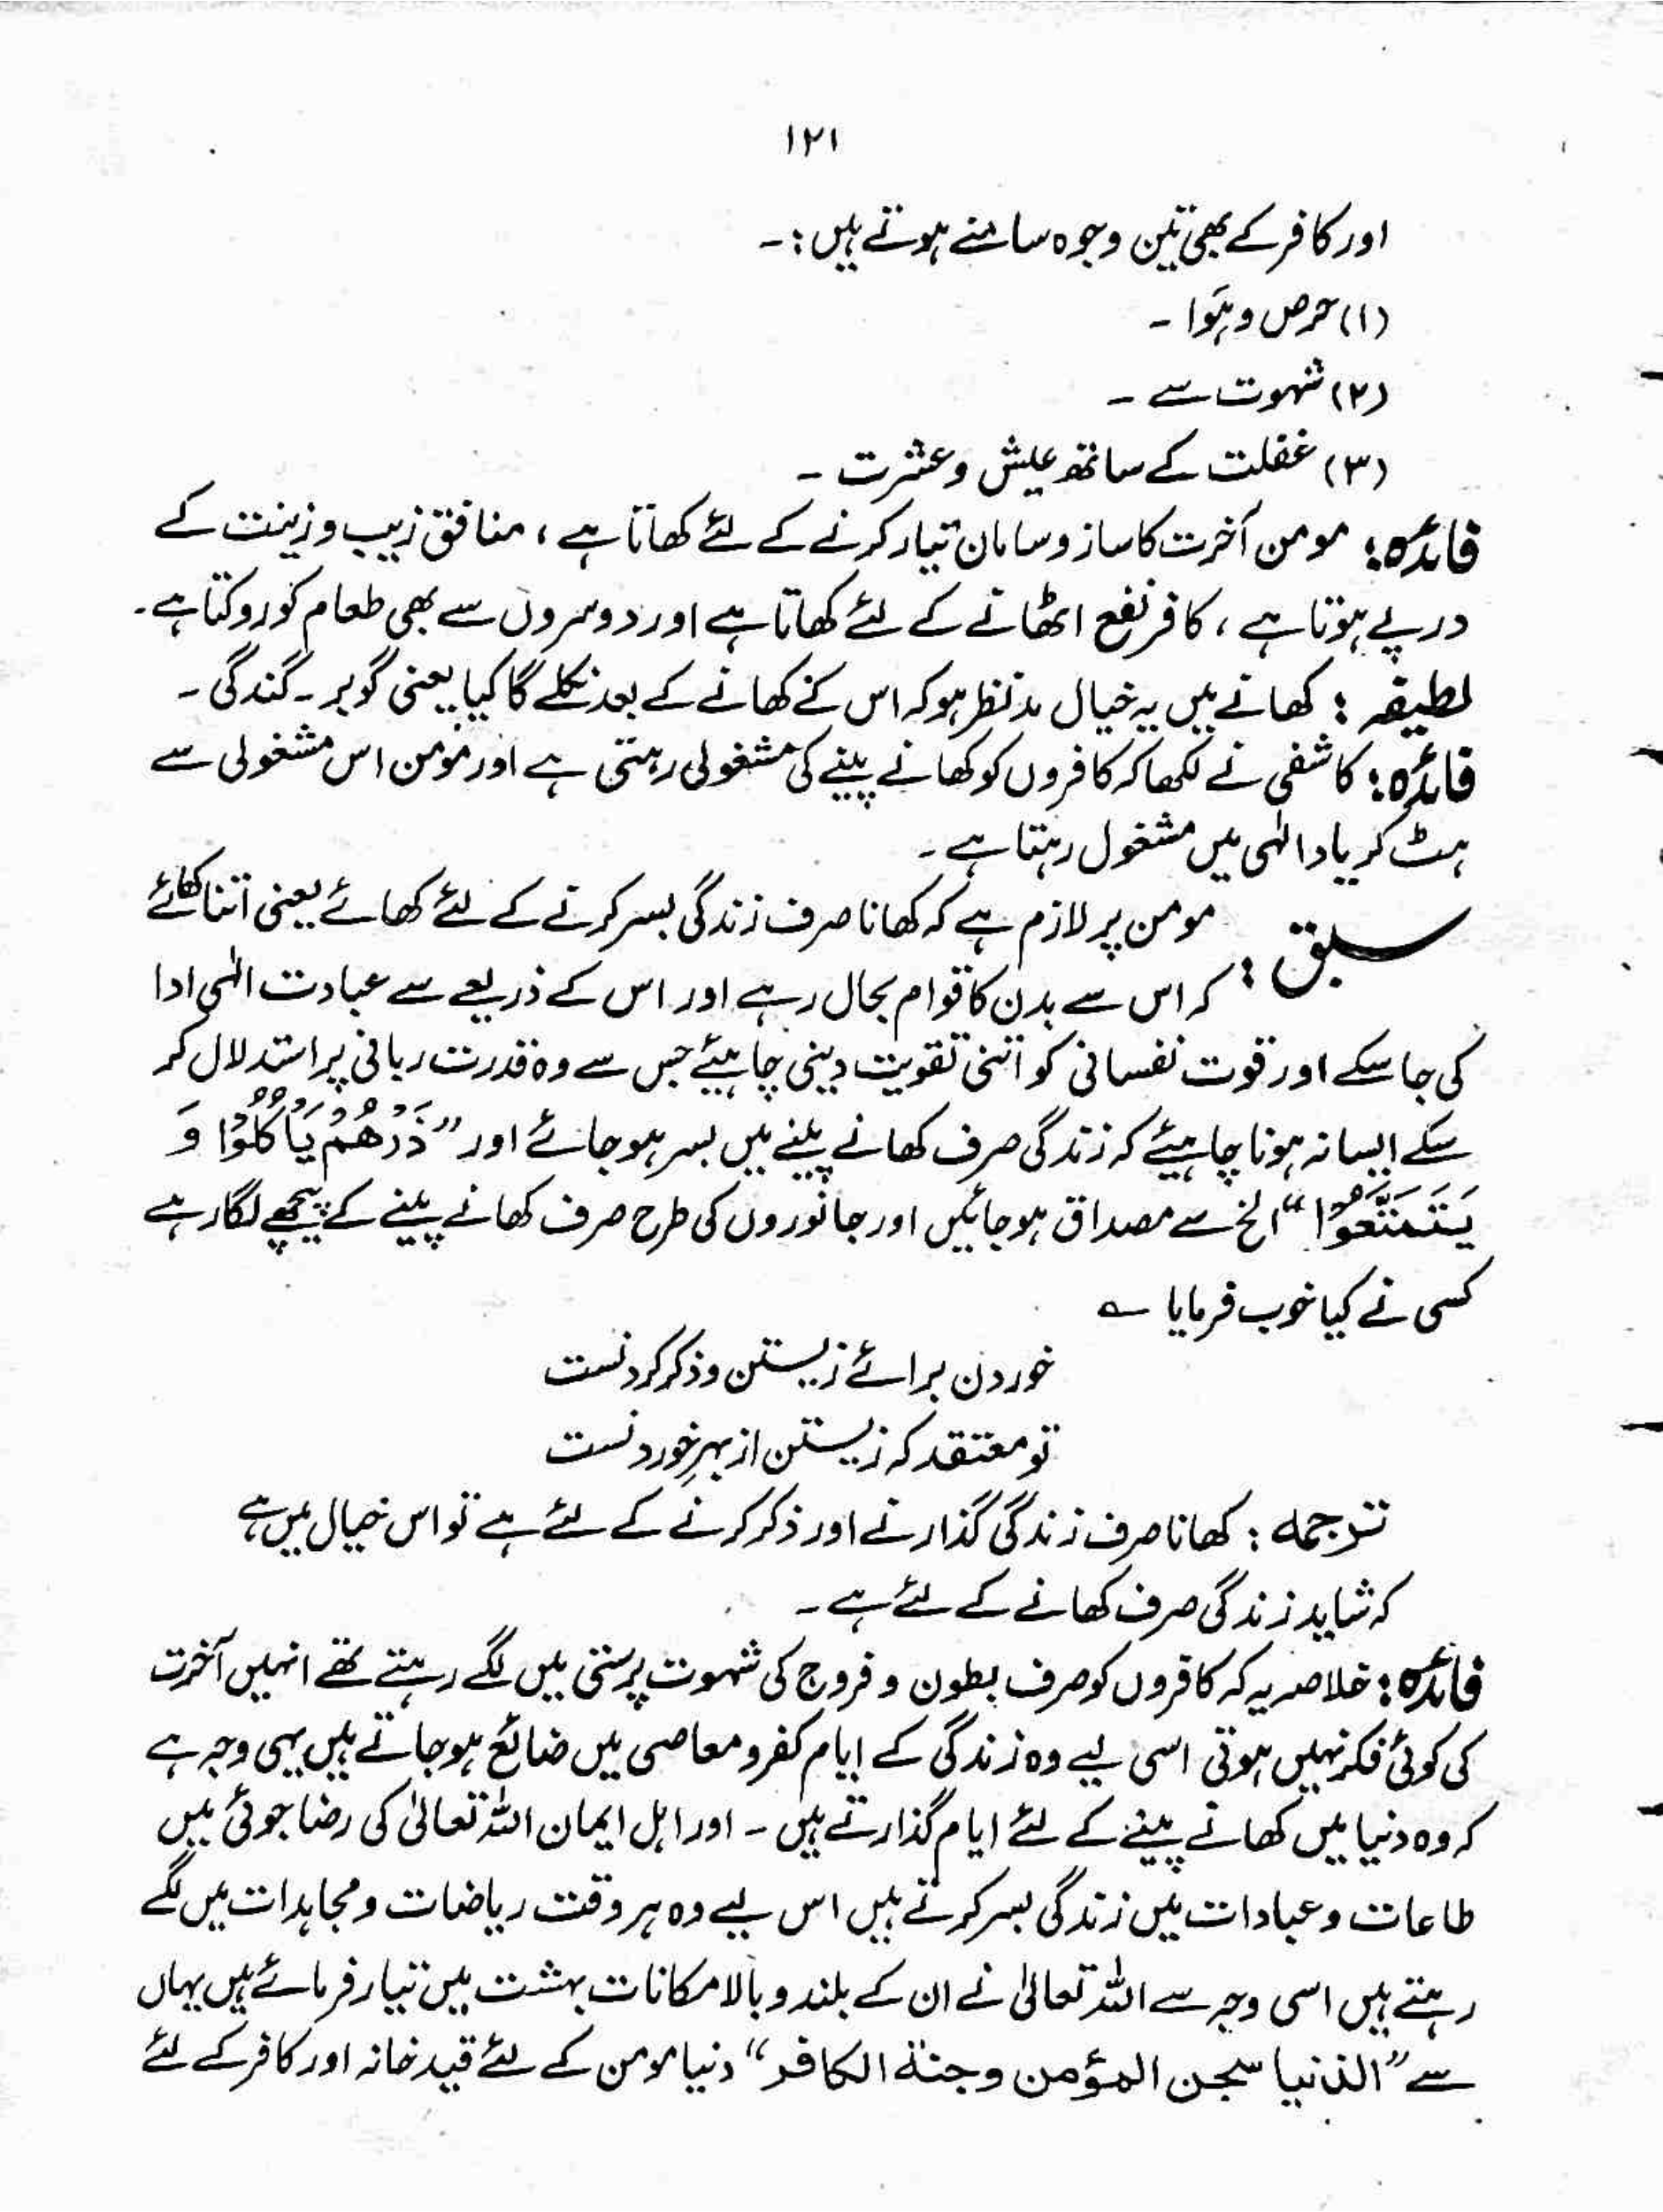 ۱۲۱
اور کافر کے بھی تین وجوہ سامنے ہوتے ہیں :۔
(۱) حرص و ہَوا ۔
(۲) شہوت سے ۔
(۳) غفلت کے ساتھ عیش و عشرت ۔
فائدہ : مومن آخرت کا ساز و سامان تیار کرنے کے لئے کھاتا ہے ، منافق زیب و زینت کے
درپے ہوتا ہے ، کافر نفع اٹھانے کے لئے کھاتا ہے اور دوسروں سے بھی طعام کو روکتا ہے ۔
لطیفہ : کھانے میں یہ خیال مدنظر ہو کہ اس کے کھانے کے بعد نکلے گا کیا یعنی گوبر ۔ گندگی ۔
فائدہ : کاشفی نے لکھا کہ کافروں کو کھانے پینے کی مشغولی رہتی ہے اور مومن اس مشغولی سے
ہٹ کر یاد الٰہی میں مشغول رہتا ہے ۔
سبق : مومن پر لازم ہے کہ کھانا صرف زندگی بسر کرنے کے لئے کھائے یعنی اتنا کھائے
کہ اس سے بدن کا قوام بحال رہے اور اس کے ذریعے سے عبادت الٰہی ادا
کی جا سکے اور قوت نفسانی کو اتنی تقویت دینی چاہیئے جس سے وہ قدرت ربانی پر استدلال کر
سکے ایسا نہ ہونا چاہیئے کہ زندگی صرف کھانے پینے میں بسر ہو جائے اور ”ذَرْهُمْ يَأْكُلُوْا وَ
يَتَمَتَّعُوْا“ الخ سے مصداق ہو جائیں اور جانوروں کی طرح صرف کھانے پینے کے پیچھے لگا رہے
کسی نے کیا خوب فرمایا ؎
خوردن برائے زیستن و ذکر کردنست
تو معتقد کہ زیستن از بہرِ خوردنست
ترجمہ : کھانا صرف زندگی گذارنے اور ذکر کرنے کے لئے ہے تو اس خیال میں ہے
کہ شاید زندگی صرف کھانے کے لئے ہے ۔
فائدہ : خلاصہ یہ کہ کافروں کو صرف بطون و فروج کی شہوت پرستی میں لگے رہتے تھے انہیں آخرت
کی کوئی فکر نہیں ہوتی اسی لیے وہ زندگی کے ایام کفر و معاصی میں ضائع ہو جاتے ہیں یہی وجہ ہے
کہ وہ دنیا میں کھانے پینے کے لئے ایام گذارتے ہیں ۔ اور اہل ایمان اللہ تعالیٰ کی رضا جوئی میں
طاعات و عبادات میں زندگی بسر کرتے ہیں اس لیے وہ ہر وقت ریاضات و مجاہدات میں لگے
رہتے ہیں اسی وجہ سے اللہ تعالیٰ نے ان کے بلند و بالا مکانات بہشت میں تیار فرمائے ہیں یہاں
سے ”الدنیا سجن المؤمن وجنة الکافر“ دنیا مومن کے لئے قید خانہ اور کافر کے لئے